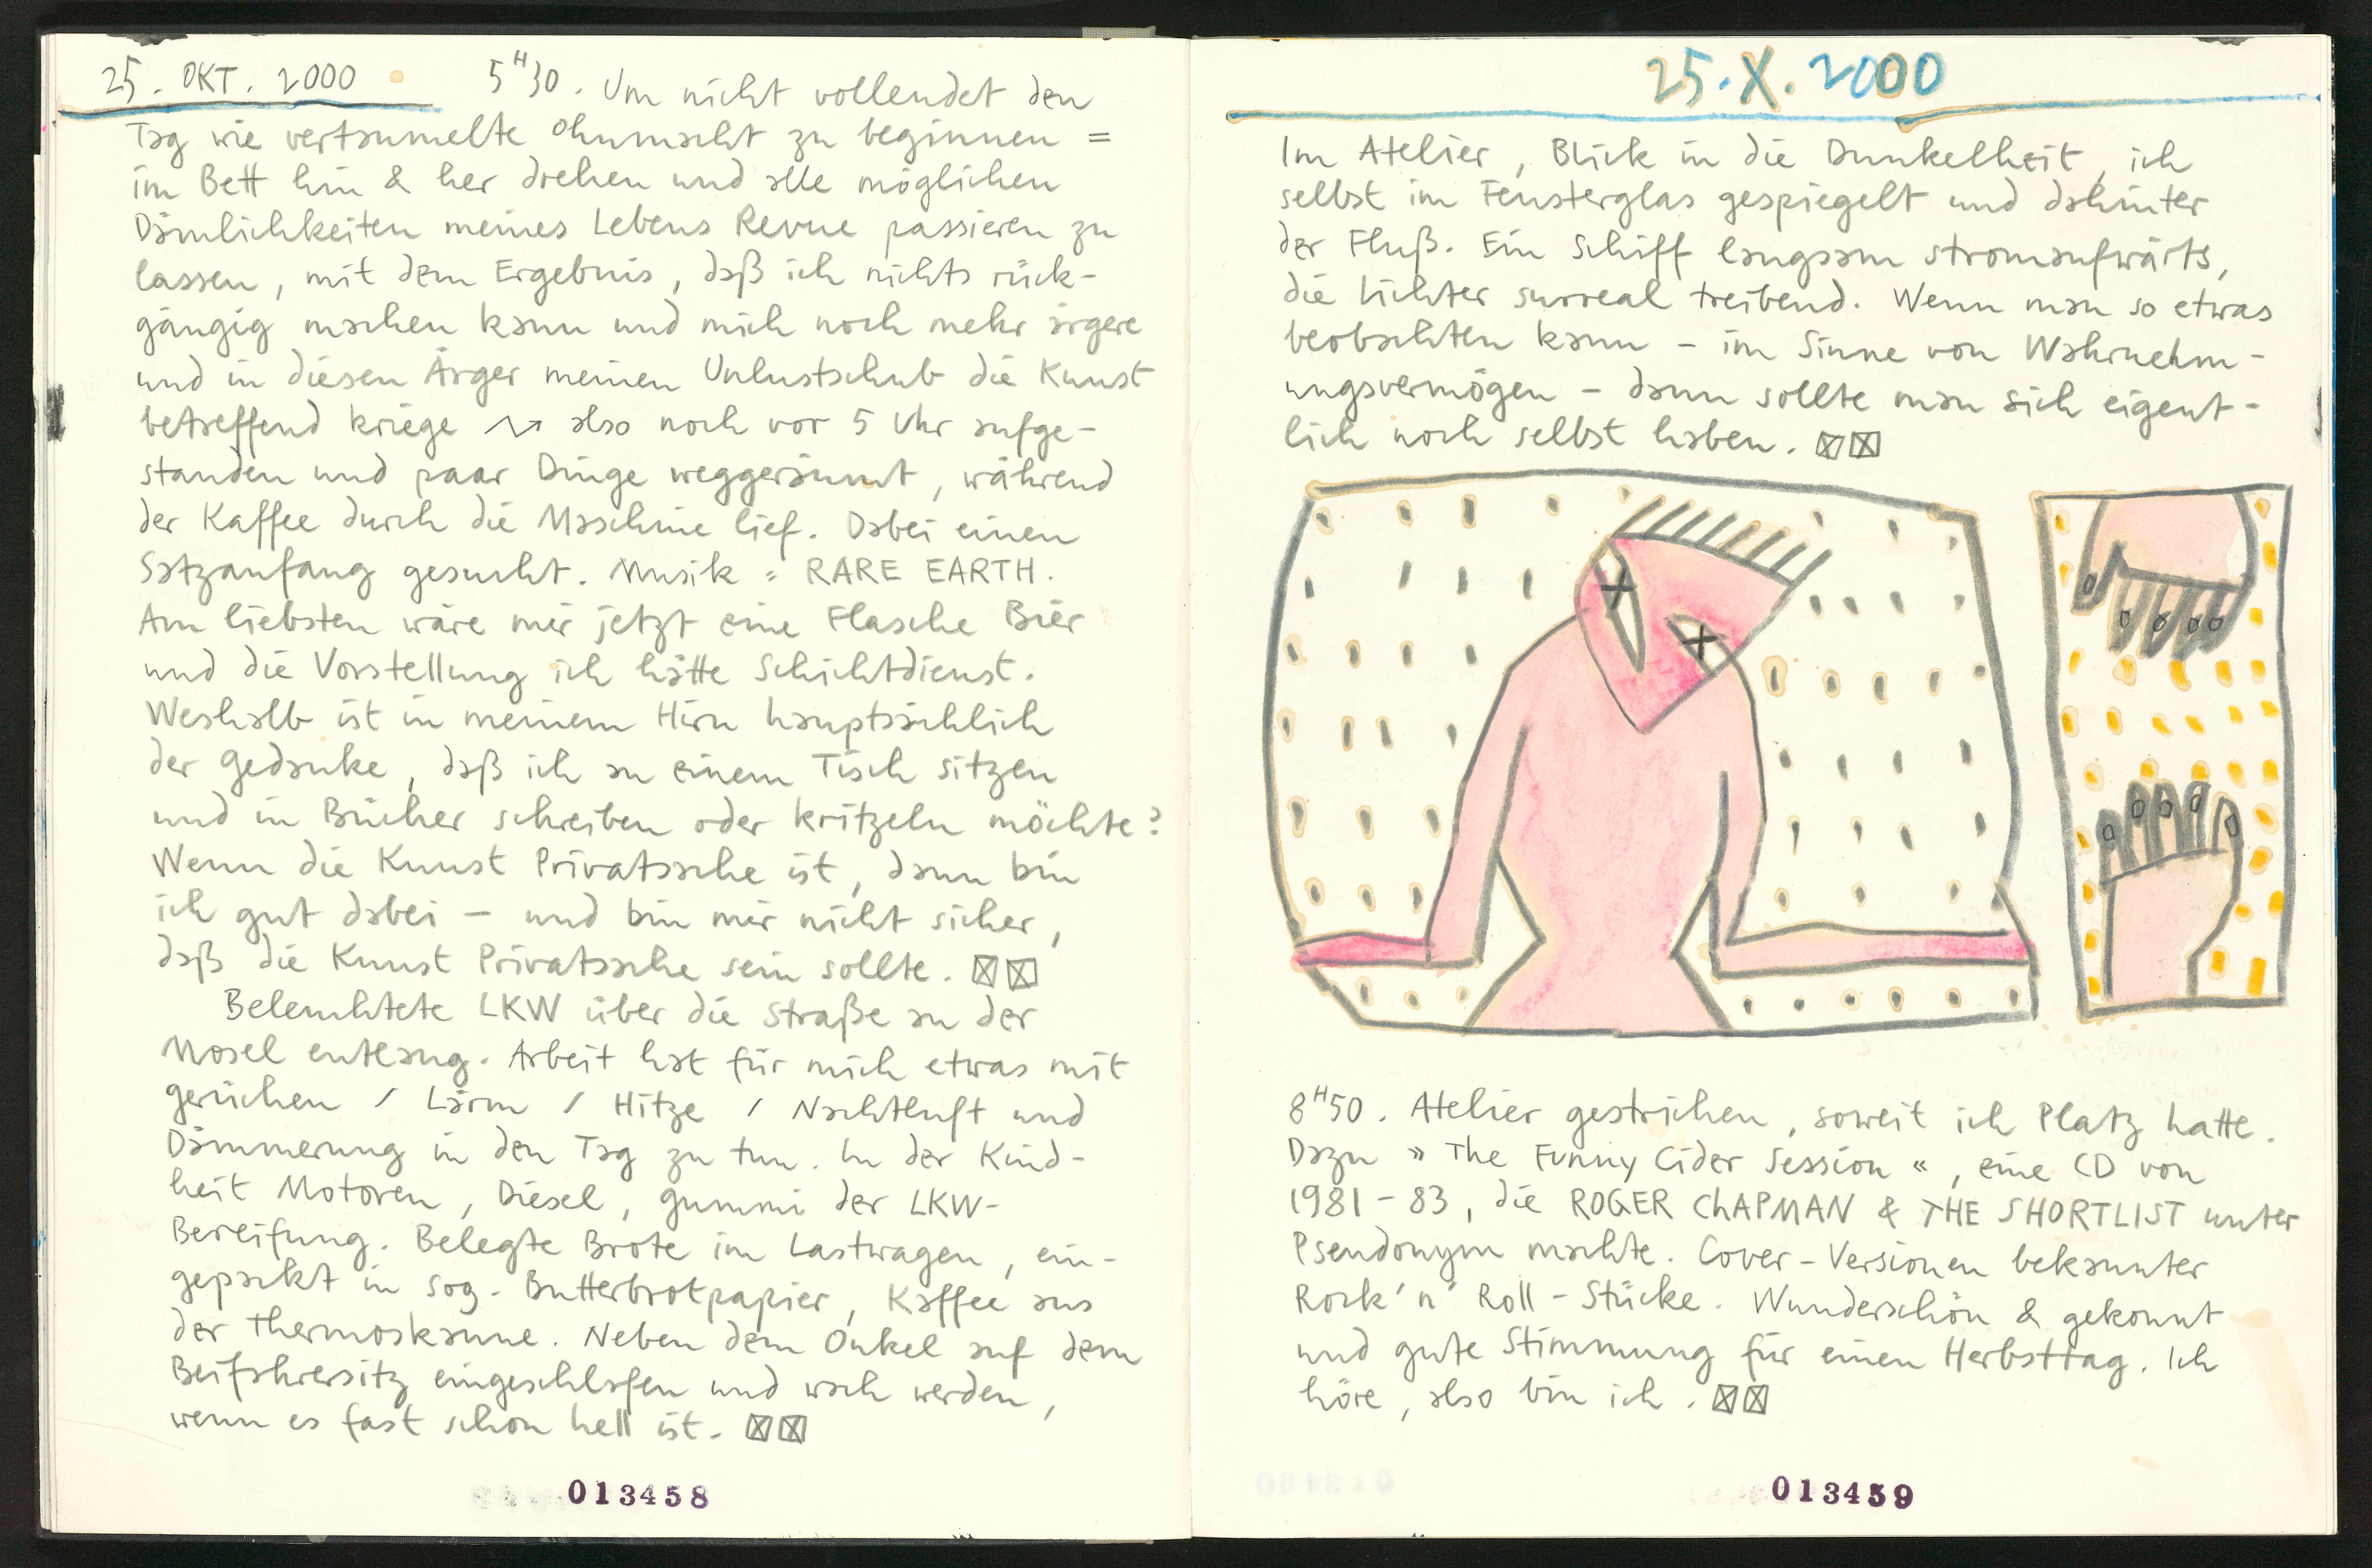 25. OKT. 2000 5H30. Um nicht vollendet den
Tag wie vertaumelte Ohnmacht zu beginnen =
im Bett hin & her drehen und alle möglichen
Dämlichkeiten meines Lebens Revue passieren zu
lassen, mit dem Ergebnis, daß ich nichts rück-
gängig machen kann und mich noch mehr ärgere
und in diesen Ärger meinen Unlustschub die Kunst
betreffend kriege also noch vor 5 Uhr aufge-
standen und paar Dinge weggeräumt, während
der Kaffee durch die Maschine lief. Dabei einen
Satzanfang gesucht. Musik = RARE EARTH.
Am liebsten wäre mir jetzt eine Flasche Bier
und die Vorstellung ich hätte Schichtdienst.
Weshalb ist in meinem Hirn hauptsächlich
der Gedanke, daß ich an einem Tisch sitzen
und in Bücher schreiben oder kritzeln möchte?
Wenn die Kunst Privatsache ist, dann bin
ich gut dabei – und bin mir nicht sicher,
daß die Kunst Privatsache sein sollte. ☒☒
Beleuchtete LKW über die Straße an der
Mosel entlang. Arbeit hat für mich etwas mit
Gerüchen / Lärm / Hitze / Nachtluft und
Dämmerung in den Tag zu tun. In der Kind-
heit Motoren, Diesel, Gummi der LKW-
Bereifung. Belegte Brote im Lastwagen, ein-
gepackt in sog. Butterbrotpapier, Kaffee aus
der Thermoskanne. Neben dem Onkel auf dem
Beifahrersitz eingeschlafen und wach werden,
wenn es fast schon hell ist. ☒☒
013458
25.X.2000
Im Atelier, Blick in die Dunkelheit, ich
selbst im Fensterglas gespiegelt und dahinter
der Fluß. Ein Schiff langsam stromaufwärts,
die Lichter surreal treibend. Wenn man so etwas
beobachten kann – im Sinne von Wahrnehm-
ungsvermögen – dann sollte man sich eigent-
lich noch selbst haben. ☒☒
8H50. Atelier gestrichen, soweit ich Platz hatte.
Dazu » The Funny Cider Session «, eine CD von
1981–83, die ROGER ChAPMAN & THE SHORTLIST unter
Pseudonym machte. Cover-Versionen bekannter
Rock'n' Roll-Stücke. Wunderschön & gekonnt
und gute Stimmung für einen Herbsttag. Ich
höre, also bin ich. ☒☒
013459